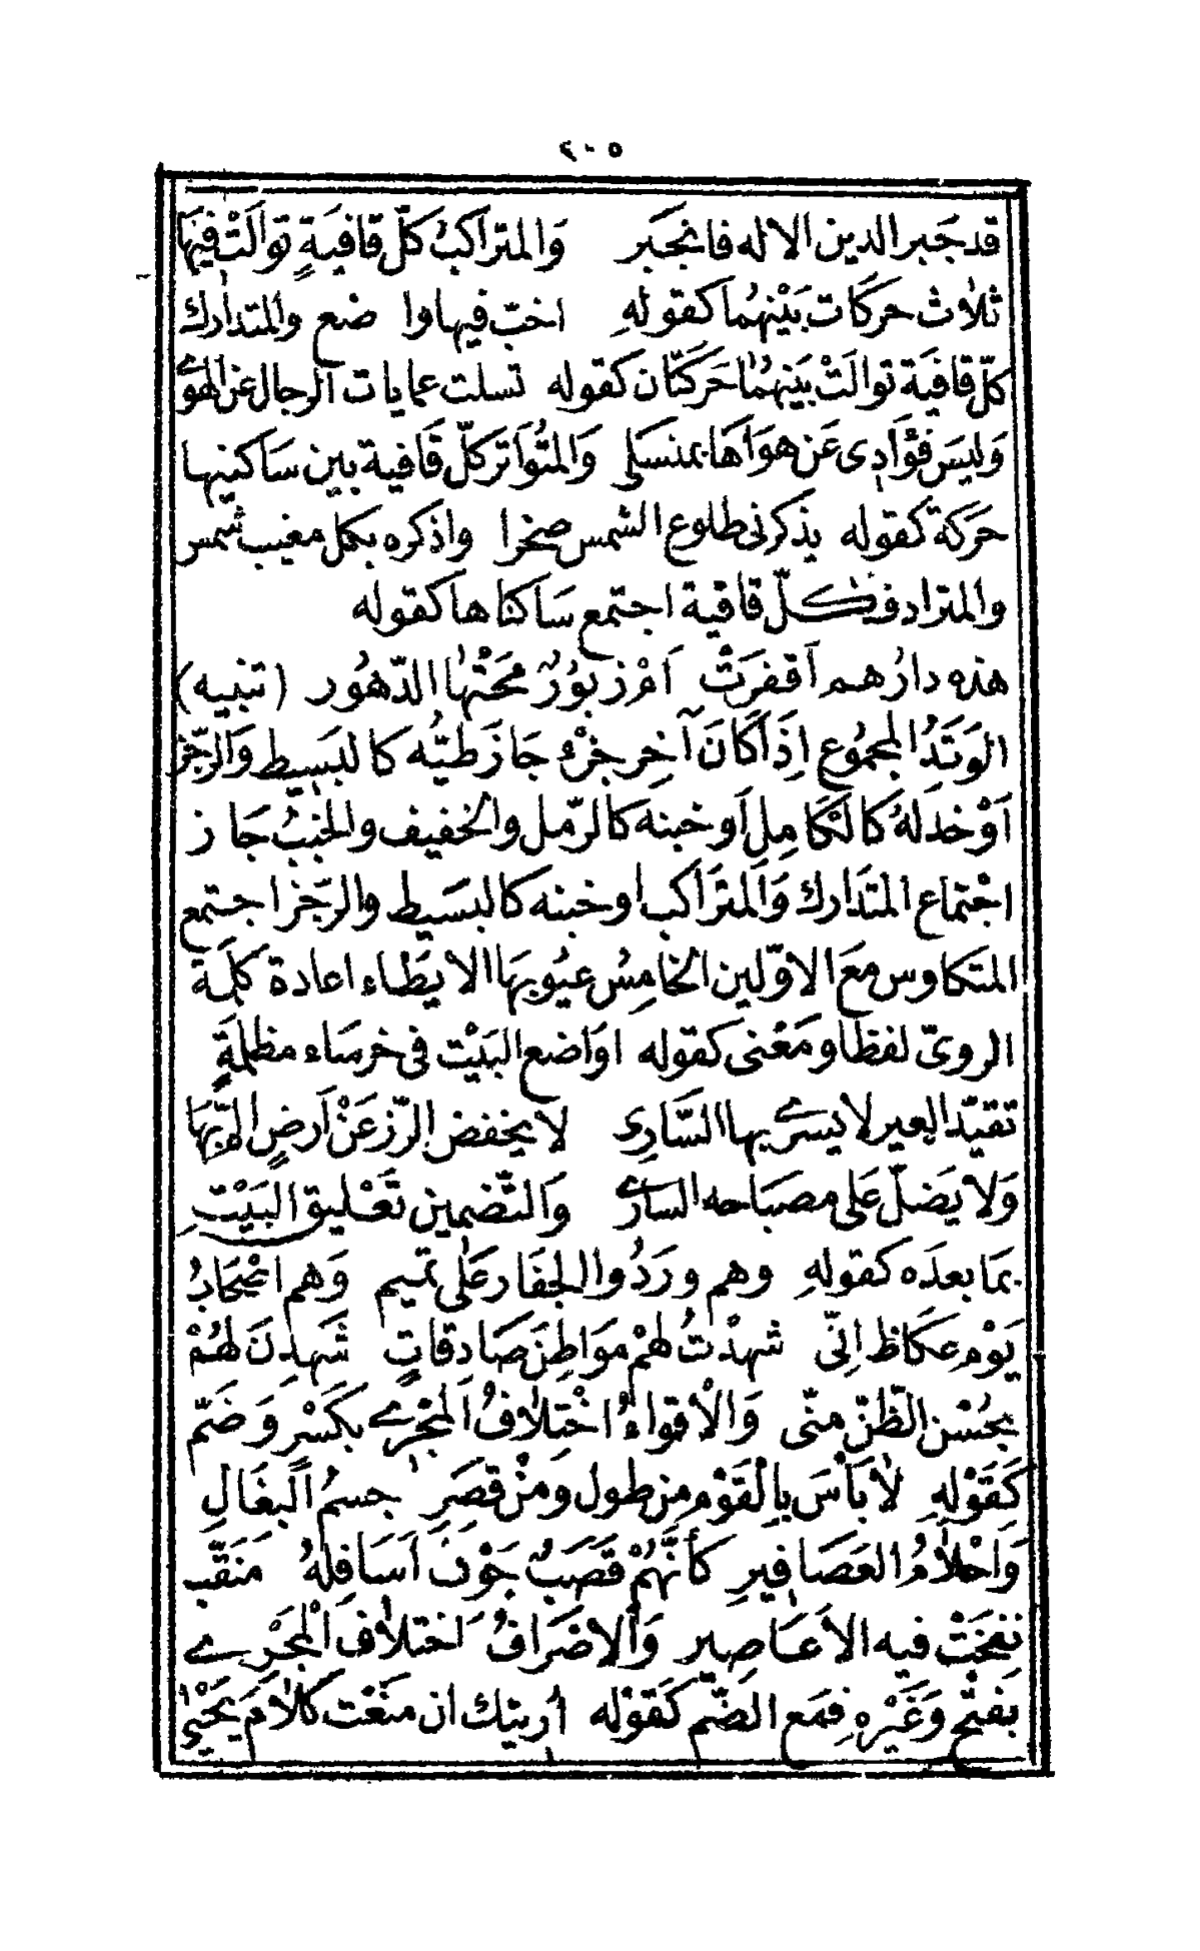 ٢٠٥
قد جَبر الدين الاله فانجَبر وَالمترَاكبُ كلّ قافيَةٍ توالَتْ فيهَا
ثلٰاث حركَات بَيْنهُما كقولهِ اخبّ فيها وا ضع والمتدارك
كلّ قافيَة توالَتْ بَينهُمٰا حَركَتٰان كقوله تسلت عمايات الرجال عَن الهَوى
وَليسَ فؤَادِى عَن هوَاهَا بمنسَلى وَالمتُوَاتر كلّ قَافية بين سَاكنيها
حَركة كقوله يذكرنى طلوع الشمس صخرا واذكره بكل مغيب شمس
والمترادف كلّ قافية اجتمع سَاكناها كقوله
هذه دارُهم اَقفرَتْ اَمْ زبُورٌ محَتْهٰا الدّهُور (تنبيه)
الوَتَدُ المجمُوع اِذَا كَانَ آخِر جُزْء جَازَ طَيّه كالبَسِيط وَالرجَز
اَوْ خذلهُ كالكَامِل اَو خبنه كالرّمل والخفيف والخببُ جَاز
اجْتماع المتدَارك وَالمترَاكب او خبنه كالبسَيط والرجَز اجتمع
المتكاوس معَ الاوّلين الخامِسُ عيُوبهَا الايطَاء اعادة كلمَة
الروىّ لفظًا ومَعْنى كقوله اوَاضع البَيْت فى خرسَاء مظلمةٍ
تقيّد العير لا يسرى بها السَّارى لا يخفض الرّز عَنْ اَرضٍ الم بهَا
وَلا يَضلّ عَلى مصبَاحه السارى وَالتّضمين تَعْليق البَيْتِ
بمَا بعدَه كقولهِ وهم ورَدُوا الجفَار عَلى تميم وَهم اصْحَابُ
يَوْم عكَاظ اِنّى شهدْتُ لهُمْ موَاطِنَ صَادقاتٍ شَهِدنَ لهُمْ
بحُسْن الظّنّ منّى وَالْاقوَاءُ اخْتِلٰافُ اَلمجْرى بكَسْرٍ وَضَمّ
كَقَوْلهِ لٰا بَاْسَ بِالْقَوْمِ مِن طول ومنْ قصَرِ جسمُ البغَالِ
وَاَحْلٰامُ العَصَافيرِ كأنّهُمْ قَصَبٌ جَوْنٌ اَسَافلهُ منَقّب
نفخَتْ فيه الاَعَاصير وَالاِصْرَافُ اختلاف اَلْمجَرْى
بفتْح وَغَيْرهِ فمَع الضّم كَقوْله اَريتك ان منَعْت كلٰامَ يَحْيٰى